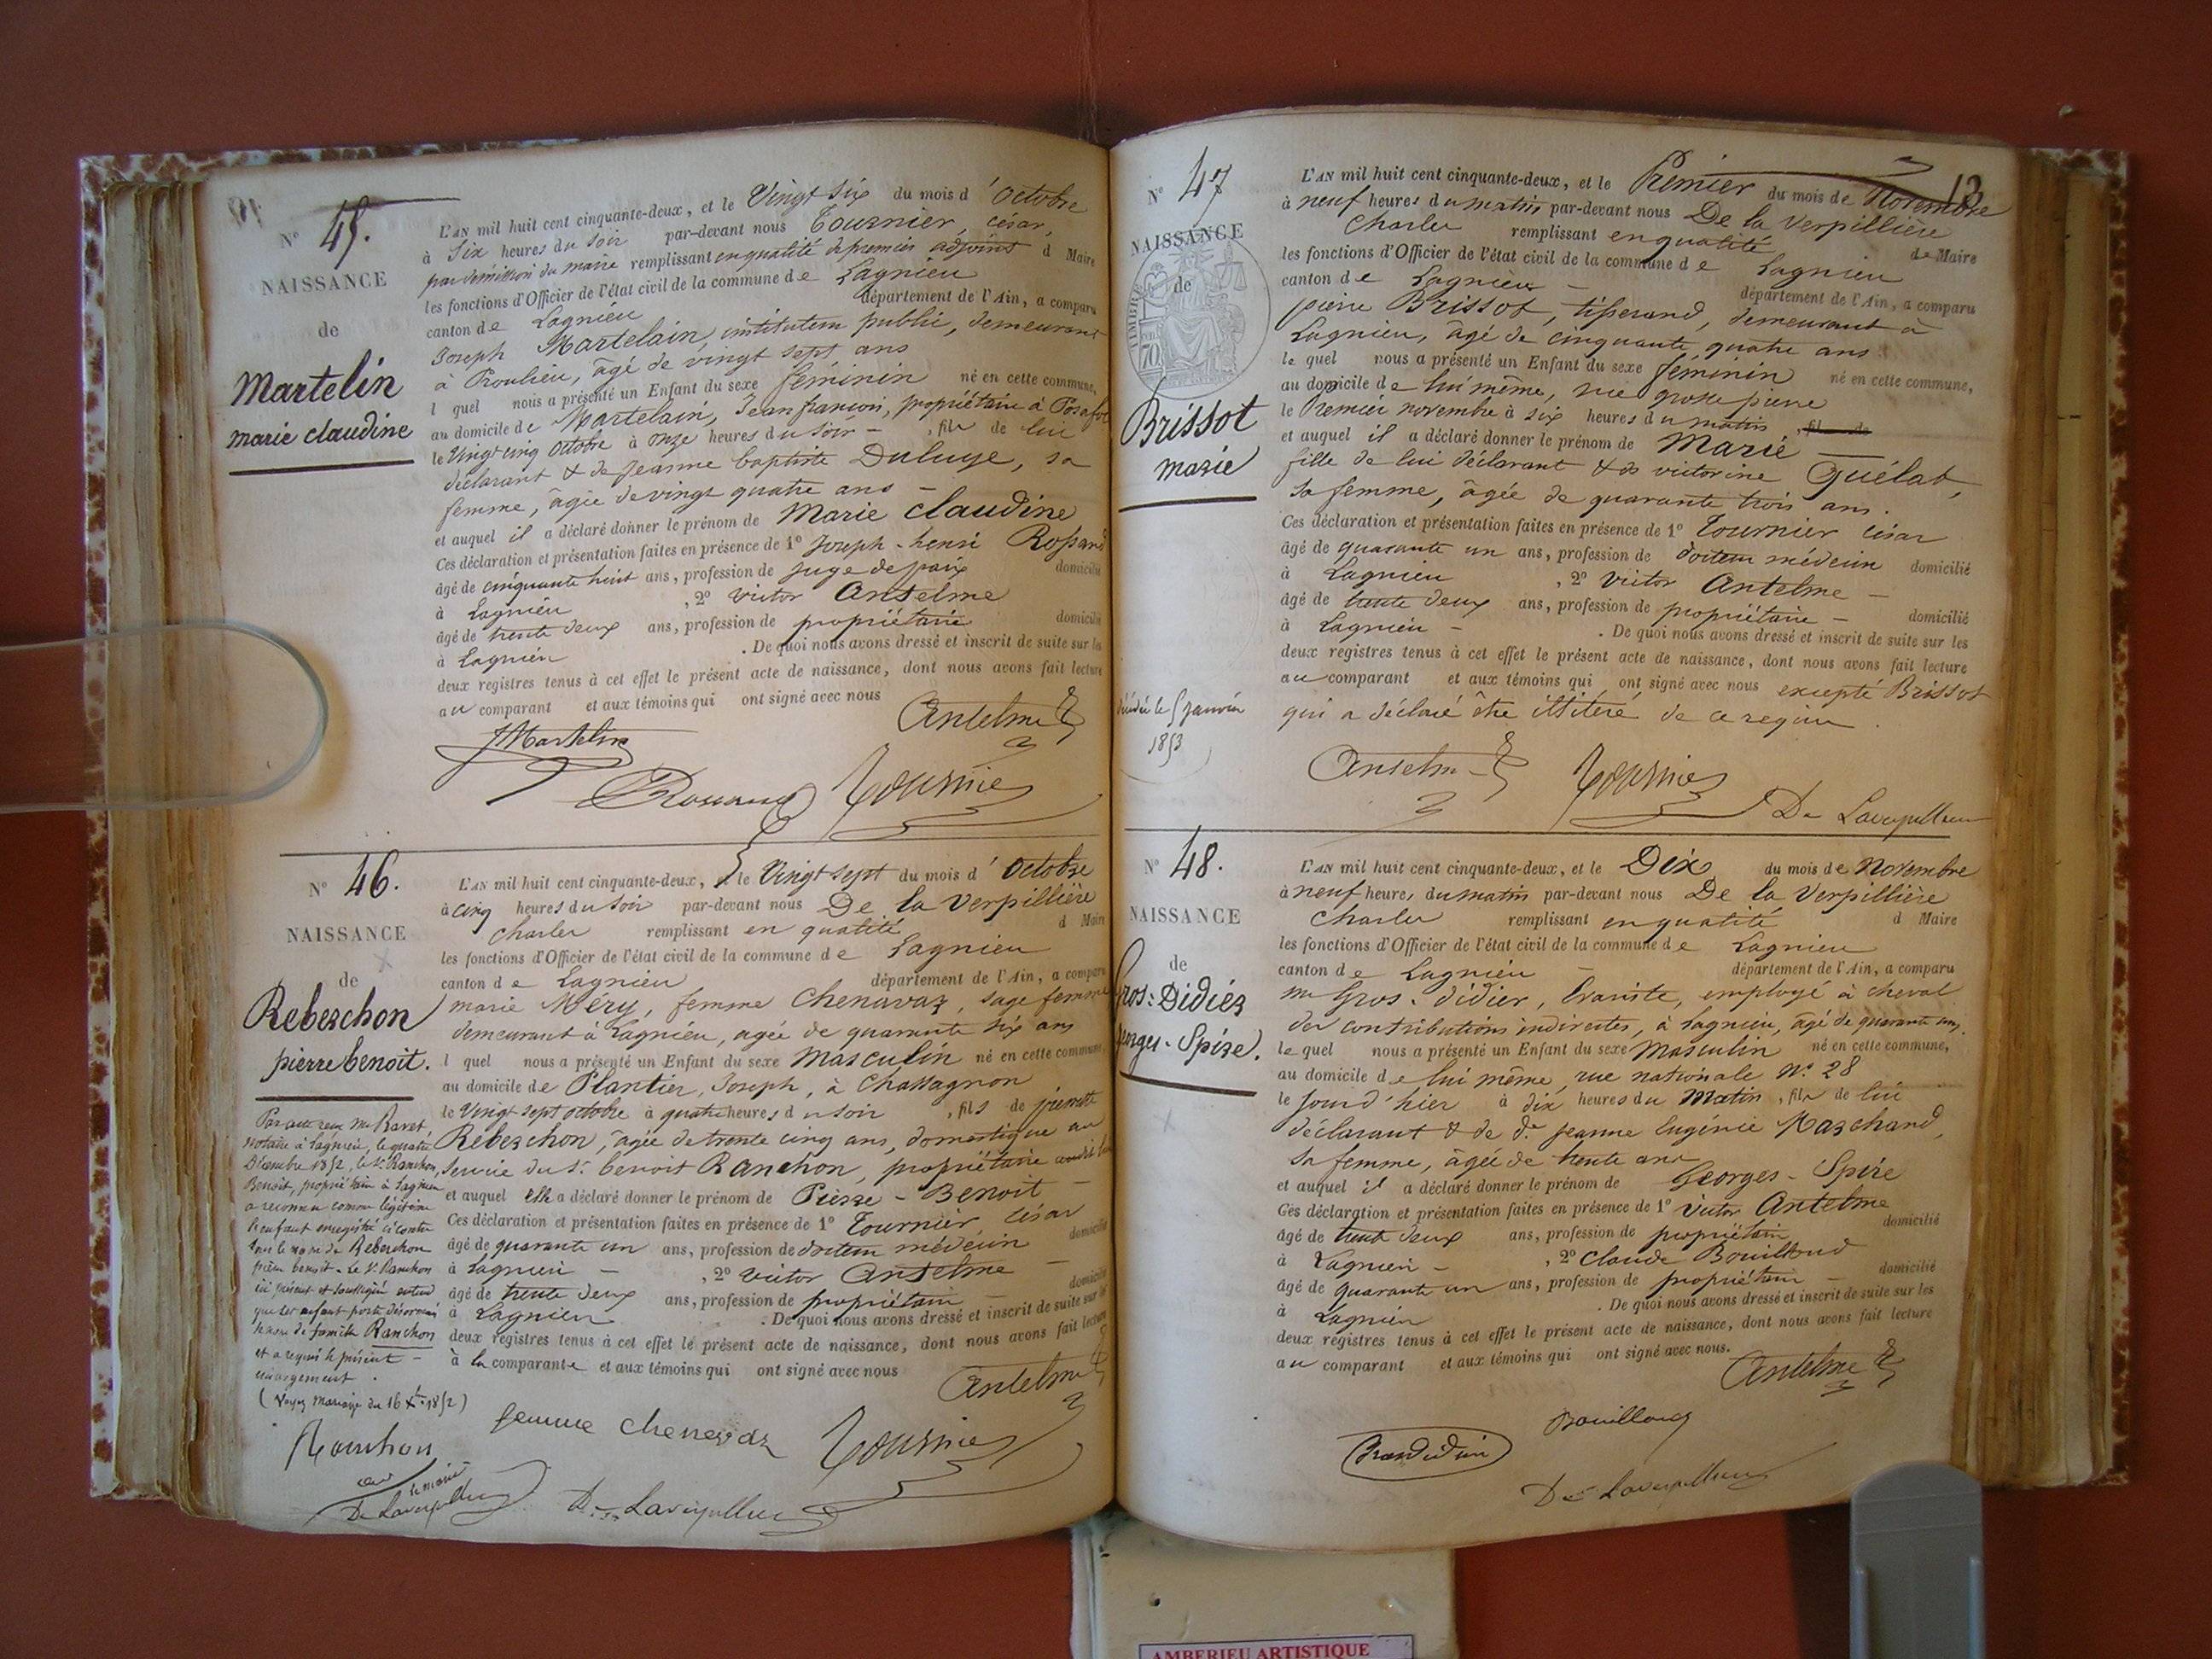 Nº 45.
NAISSANCE
de
Martelin
marie claudine
L'AN mil huit cent cinquante-deux, et le Vingt six du mois d'Octobre
à Six heures du soir par-devant nous Tournier, césar,
par démission du maire remplissant en qualité de premier adjoint d Maire
les fonctions d'Officier de l'état civil de la commune de Lagnieu
canton de Lagnieu département de l'Ain, a comparu
Joseph Martelain, instituteur public, demeurant
à Proulieu, âgé de vingt sept ans
l quel nous a présenté un Enfant du sexe féminin né en cette commune,
au domicile de Martelain, Jean françois, propriétaire à Posafol
le Vingt cinq Octobre à onze heures du soir – , fils de lui
déclarant & de Jeanne baptiste Duluye, sa
femme, âgée de vingt quatre ans –
et auquel il a déclaré donner le prénom de Marie claudine
Ces déclaration et présentation faites en présence de 1º Joseph-henri Rossand
âgé de cinquante huit ans, profession de Juge de paix domicilié
à Lagnieu , 2º victor Anselme
âgé de trente deux ans, profession de propriétaire domicilié
à Lagnieu . De quoi nous avons dressé et inscrit de suite sur les
deux registres tenus à cet effet le présent acte de naissance, dont nous avons fait lecture
au comparant et aux témoins qui ont signé avec nous
Anselme
JMartelin
Rossand Tournier
Nº 46.
NAISSANCE
de
Rebeschon
pierre benoit.
L'AN mil huit cent cinquante-deux, et le Vingt sept du mois d'Octobre
à cinq heures du soir par-devant nous De la Verpillière
Charles remplissant en qualité d Maire
les fonctions d'Officier de l'état civil de la commune de Lagnieu
canton de Lagnieu département de l'Ain, a comparu
marie Méry, femme Chenavaz, sage femme
demeurant à Lagnieu, agée de quarante six ans
l quel nous a présenté un Enfant du sexe Masculin né en cette commune
au domicile de Plantier, Joseph, à Chassagnon
le Vingt sept octobre à quatre heures du soir , fils de pierrette
Rebeschon, âgée de trente cinq ans, domestique au
service du sr. benoit Ranchon, propriétaire
et auquel elle a déclaré donner le prénom de Pierre - Benoit –
Ces déclaration et présentation faites en présence de 1º Tournier, césar
âgé de quarante un ans, profession de docteur médecin domicilié
à Lagnieu – , 2º victor Anselme –
âgé de trente deux ans, profession de propriétaire – domicilié
à Lagnieu . De quoi nous avons dressé et inscrit de suite sur les
deux registres tenus à cet effet le présent acte de naissance, dont nous avons fait lecture
à la comparante et aux témoins qui ont signé avec nous
Par acte reçu Me Ravet,
notaire à Lagnieu, le quatre
Décembre 1852, le Sr. Ranchon,
Benoit, propriétaire à Lagnieu
a reconnu comme légitime
l'enfant enregistré ci contre
sous le nom de Rebeschon
pierre benoit. Le Sr. Ranchon
ici présent et soussigné entend
que cet enfant porte désormais
le nom de famille Ranchon
et a requis le présent –
émargement.
(Voyez Mariage du 16 Xbre 1852)
Anselme
femme chenavaz Tournier
Ranchon
le maire
De Laverpillière
De Laverpillière
13
Nº 47
NAISSANCE
de
TIMBRE
70
Brissot
marie
décédée le 5 janvier
1853
L'AN mil huit cent cinquante-deux, et le Premier du mois de Novembre
à neuf heures du matin par-devant nous De la Verpillière
Charles remplissant en qualité de Maire
les fonctions d'Officier de l'état civil de la commune de Lagnieu
canton de Lagnieu – département de l'Ain, a comparu
pierre Brissot, tisserand, demeurant à
Lagnieu, âgé de cinquante quatre ans
le quel nous a présenté un Enfant du sexe féminin né en cette commune,
au domicile de lui même, rue grosse pierre
le Premier novembre à six heures du matin , fil de
et auquel il a déclaré donner le prénom de Marie –
fille de lui déclarant & de victorine Guélat,
sa femme, âgée de quarante trois ans.
Ces déclaration et présentation faites en présence de 1º Tournier césar
âgé de quarante un ans, profession de docteur médecin domicilié
à Lagnieu , 2º victor Anselme –
âgé de trente deux ans, profession de propriétaire – domicilié
à Lagnieu – . De quoi nous avons dressé et inscrit de suite sur les
deux registres tenus à cet effet le présent acte de naissance, dont nous avons fait lecture
au comparant et aux témoins qui ont signé avec nous excepté Brissot
qui a déclaré être illitéré de ce requis.
Anselme Tournier
De Laverpillière
Nº 48.
NAISSANCE
de
Gros-Didiér
Georges-Spire.
L'AN mil huit cent cinquante-deux, et le Dix du mois de Novembre
à neuf heures du matin par-devant nous De la Verpillière
Charles remplissant en qualité d Maire
les fonctions d'Officier de l'état civil de la commune de Lagnieu
canton de Lagnieu – département de l'Ain, a comparu
mr Gros-didier, Evariste, employé à cheval
des contributions indirectes, à Lagnieu, âgé de quarante ans,
le quel nous a présenté un Enfant du sexe Masculin né en cette commune,
au domicile de lui même, rue nationale Nº 28
le Jourd'hier à dix heures du Matin , fils de lui
déclarant & de de Jeanne Eugénie Marchand,
sa femme, âgée de trente ans
et auquel il a déclaré donner le prénom de Georges - Spire
Ces déclaration et présentation faites en présence de 1º Victor Anselme
âgé de trente deux ans, profession de propriétaire domicilié
à Lagnieu – , 2º Claude Bouilloud
âgé de quarante un ans, profession de propriétaire – domicilié
à Lagnieu . De quoi nous avons dressé et inscrit de suite sur les
deux registres tenus à cet effet le présent acte de naissance, dont nous avons fait lecture
au comparant et aux témoins qui ont signé avec nous.
Anselme
Bouilloud
De Laverpillière
AMBERIEU ARTISTIQUE